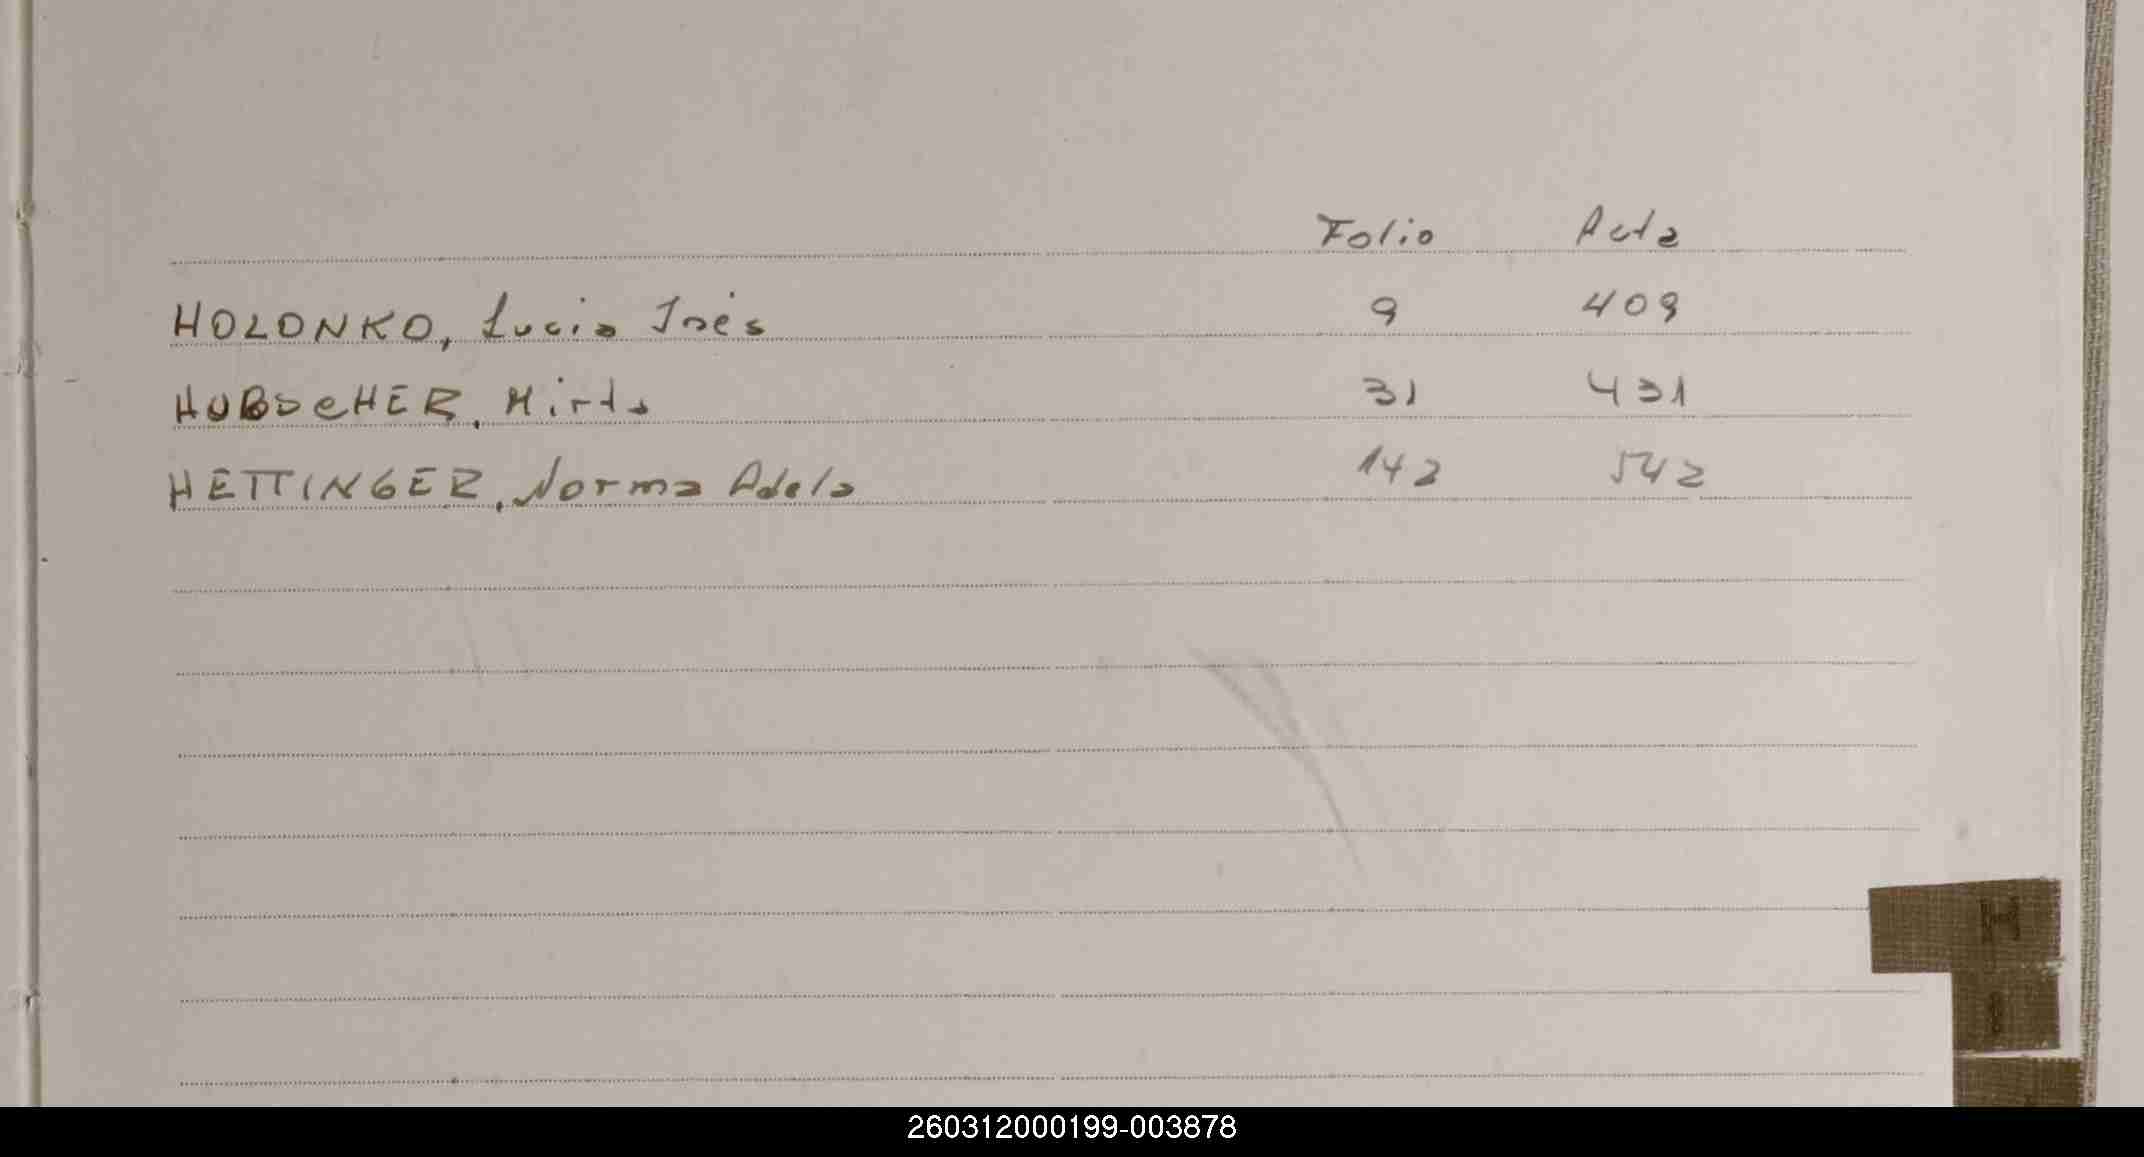 Folio Acta
HOLONKO, Lucia Inés 9 409
HUBSCHER, Mirta 31 431
HETTINGER, Norma Adela 142 542
H
260312000199-003878